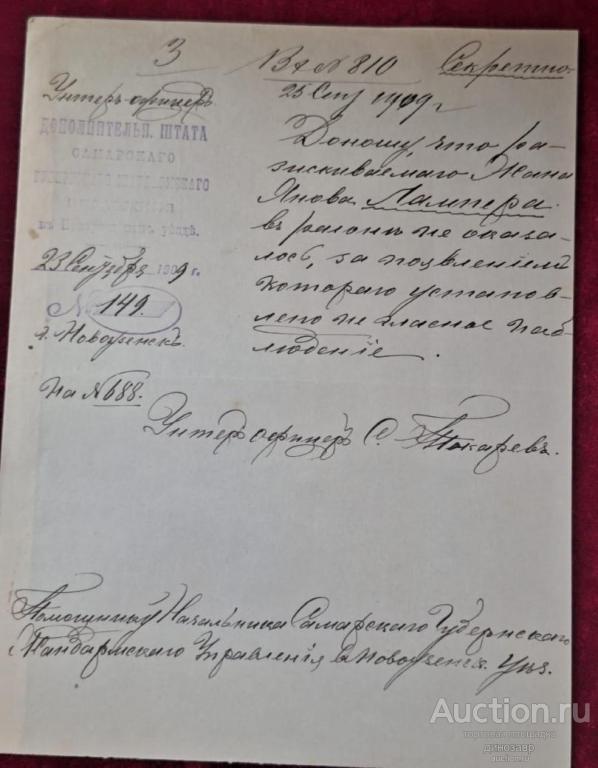 3
Вх № 810
Секретно
25 Сен 1909 г
Унтер-офицеръ
ДОПОЛНИТЕЛЬН. ШТАТА
САМАРСКАГО
ГУБЕРНСКАГО ЖАНДАРМСКАГО
23 Сентября 1909 г.
№ 149.
г. Новоузенскъ
На № 688.
Доношу, что ра-
зискиваемаго Жана
Янова Лампера
въ раіонѣ не оказа-
лось, за появленіемъ
котораго установ-
лено не гласное наб-
люденіе.
Унтеръ офицеръ С. Токаревъ.
Помощнику Начальника Самарскаго Губернскаго
Жандармскаго Управленія въ Новоузенск. Уѣз.
Auction.ru
торговая площадка
динозавр
auction.ru